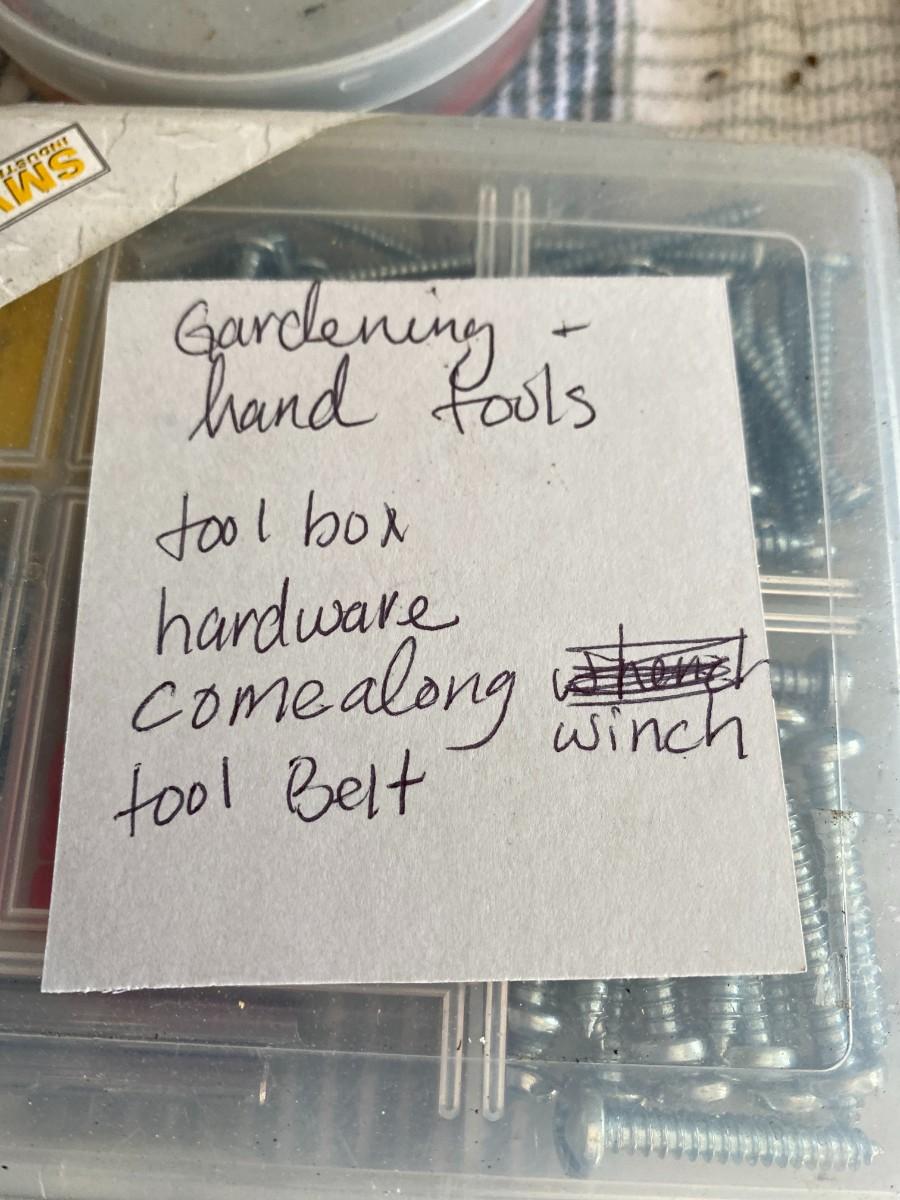 SMV
INDUST
Gardening +
hand tools
tool box
hardware
comealong
winch
tool Belt